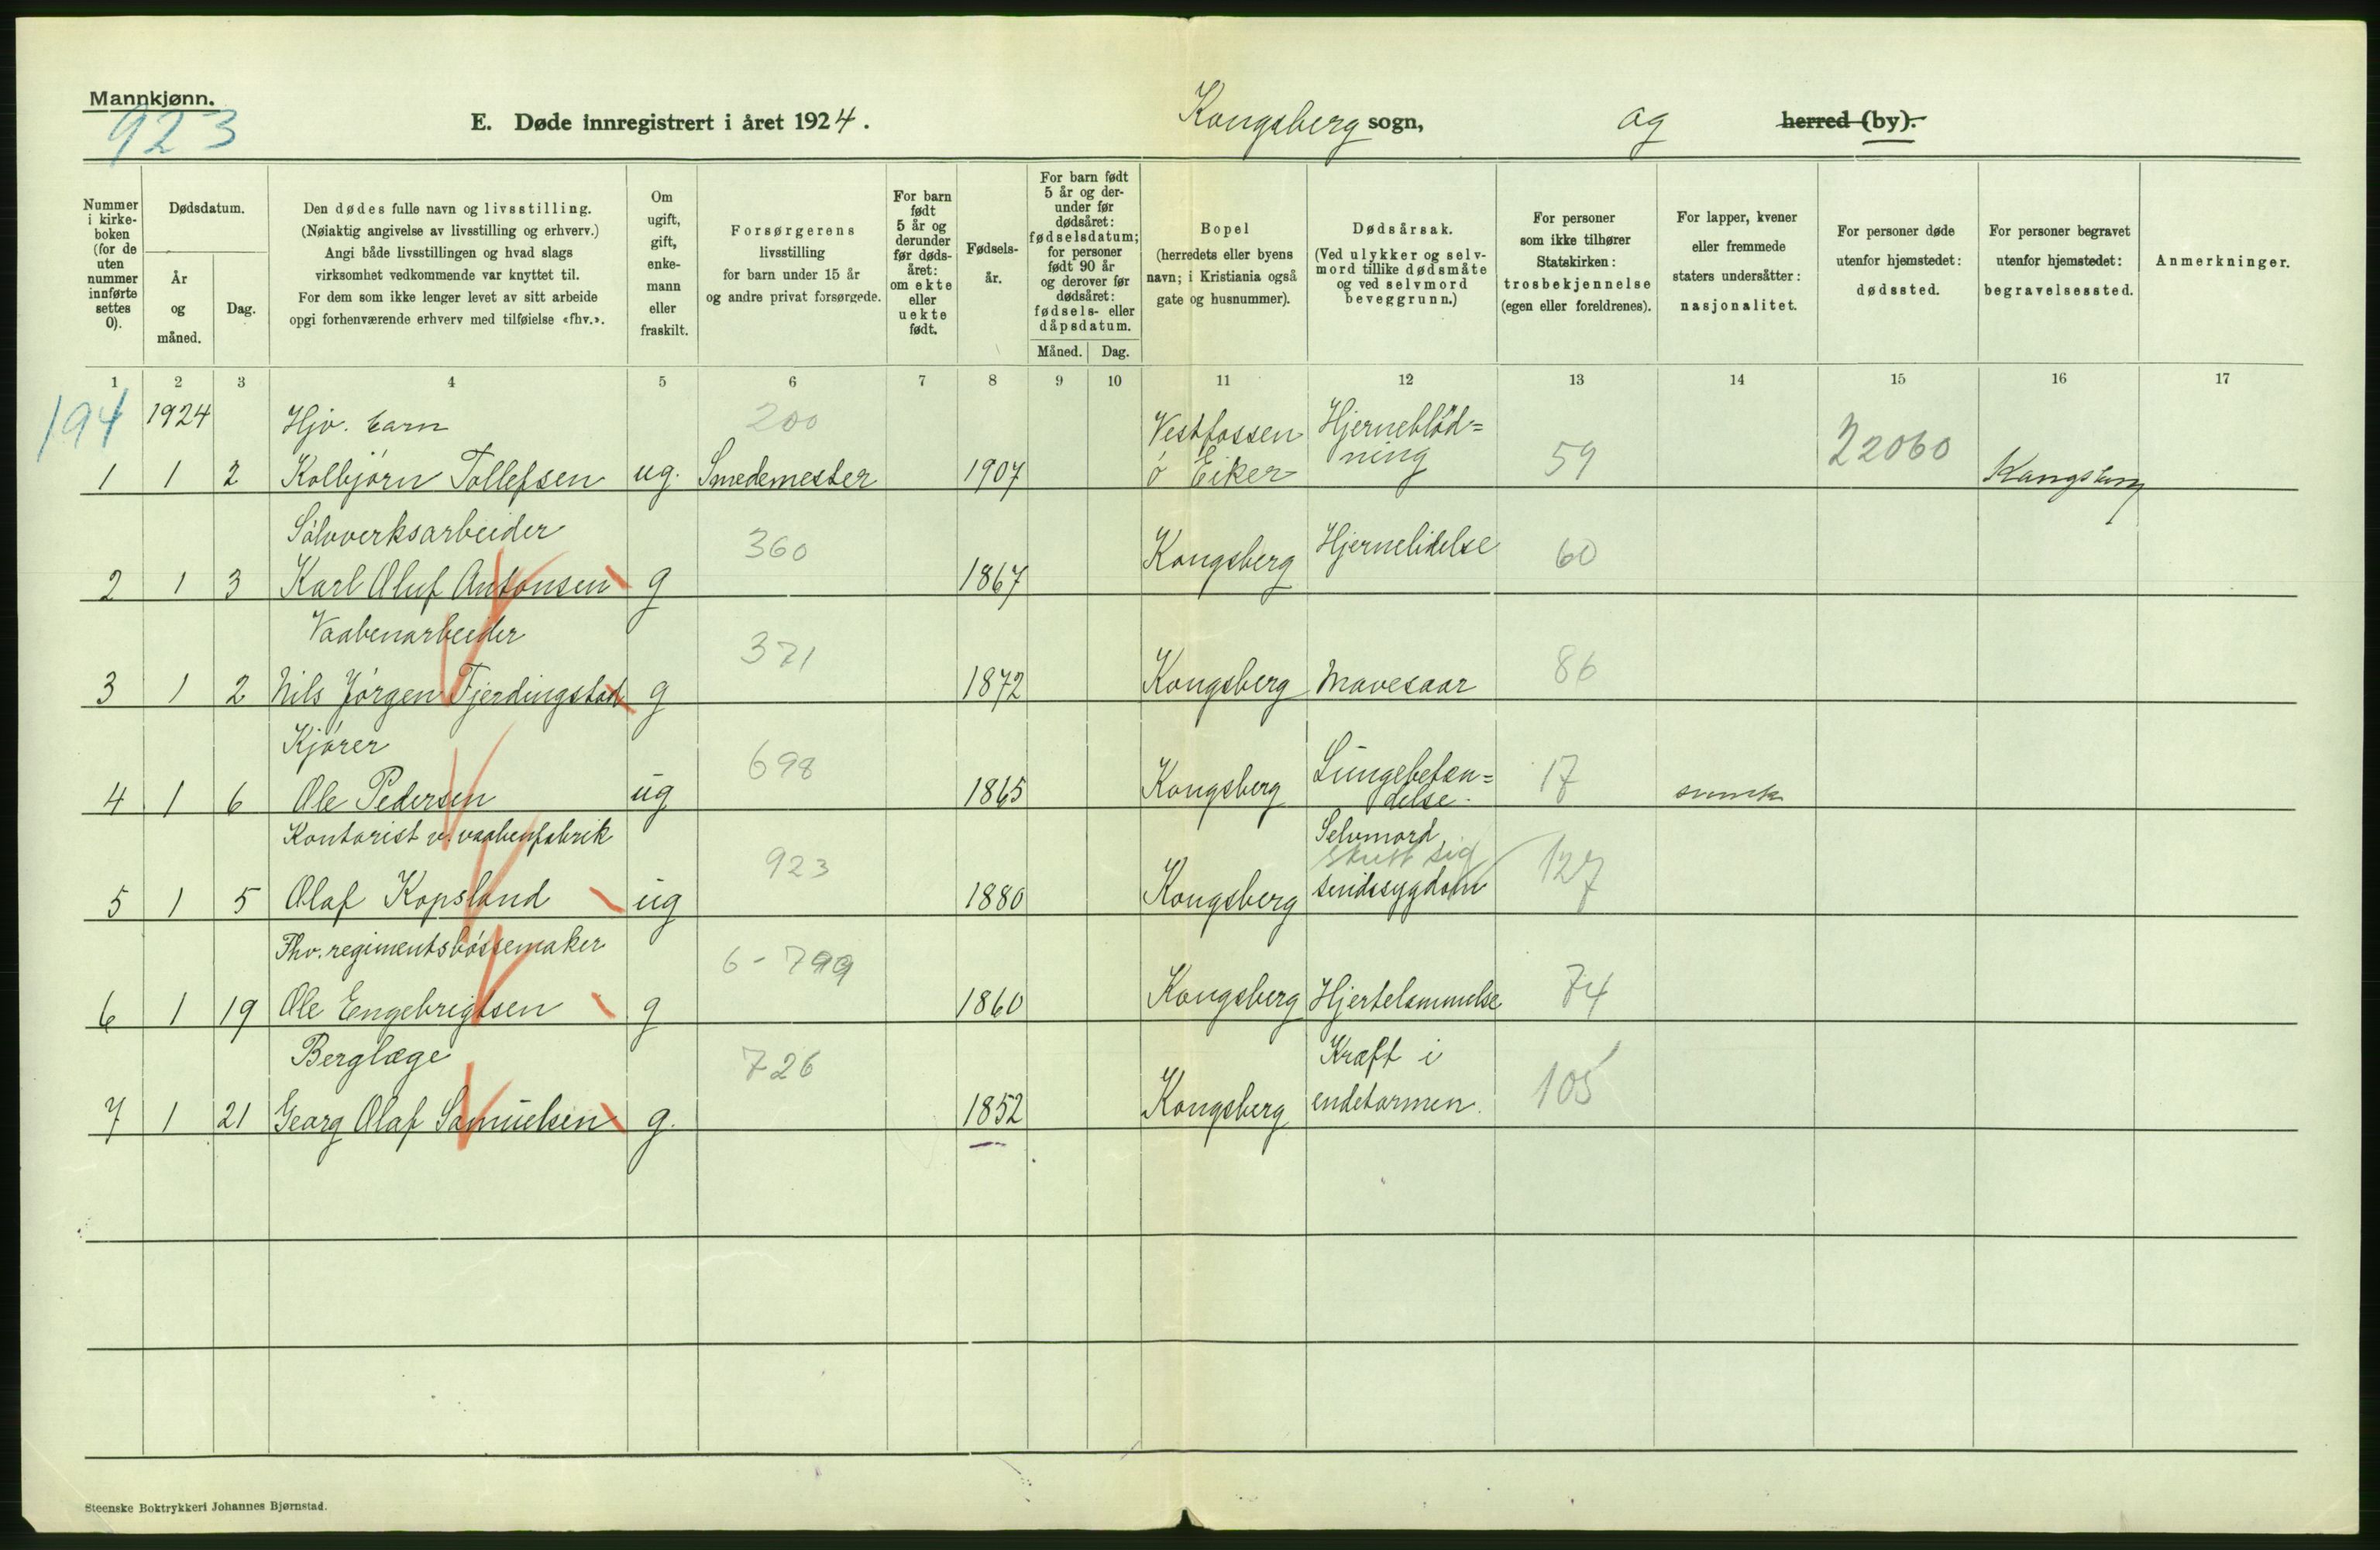 Mannkjønn.
923
E. Døde innregistrert i året 1924.
Kongsberg sogn, og herred (by).
Nummer i kirke-boken (for de uten nummer innførte settes 0).
Dødsdatum.
År og måned.
Dag.
Den dødes fulle navn og livsstilling.
(Nøiaktig angivelse av livsstilling og erhverv.)
Angi både livsstillingen og hvad slags
virksomhet vedkommende var knyttet til.
For dem som ikke lenger levet av sitt arbeide
opgi forhenværende erhverv med tilføielse «fhv.».
Om ugift, gift, enke-mann eller fraskilt.
Forsørgerens
livsstilling
for barn under 15 år
og andre privat forsørgede.
For barn født 5 år og derunder før døds-året: om ekte eller uekte født.
Fødsels-år.
For barn født 5 år og der-under før dødsåret: fødselsdatum; for personer født 90 år og derover før dødsåret: fødsels- eller dåpsdatum.
Måned. Dag.
Bopel
(herredets eller byens
navn; i Kristiania også
gate og husnummer).
Dødsårsak.
(Ved ulykker og selv-
mord tillike dødsmåte
og ved selvmord
beveggrunn.)
For personer
som ikke tilhører
Statskirken:
trosbekjennelse
(egen eller foreldrenes).
For lapper, kvener
eller fremmede
staters undersåtter:
nasjonalitet.
For personer døde
utenfor hjemstedet:
dødssted.
For personer begravet
utenfor hjemstedet:
begravelsessted.
Anmerkninger.
1 2 3 4 5 6 7 8 9 10 11 12 13 14 15 16 17
194 1924 Hjv. barn 200 Vestfossen Hjerneblød=
1 1 2 Kolbjørn Tollefsen ug. Smedemester 1907 ö Eiker ning 59 22060 Kongsberg
Sølvverksarbeider 360
2 1 3 Karl Oluf Antonsen g 1867 Kongsberg Hjernelidelse 60
Vaabenarbeider 371
3 1 2 Nils Jörgen Fjerdingstad g 1872 Kongsberg Mavesaar 86
Kjører 698 Lungebeten=
4 1 6 Ole Pedersen ug 1865 Kongsberg delse. 17 svensk
Kontorist v. vaabenfabrik 923 Selvmord
skutt sig
5 1 5 Olaf Kopsland ug 1880 Kongsberg sindssygdom 127
Fhv. regimentsbøssemaker 6-799
6 1 19 Ole Engebrigtsen g 1860 Kongsberg Hjertelammelse 74
Berglæge 726 Kræft i
7 1 21 Georg Olaf Samuelsen g. 1852 Kongsberg endetarmen. 105
Steenske Boktrykkeri Johannes Bjørnstad.